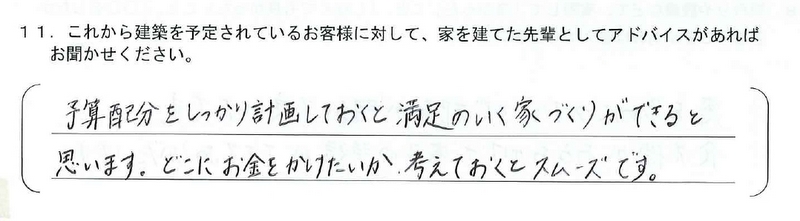 11．これから建築を予定されているお客様に対して、家を建てた先輩としてアドバイスがあれば
お聞かせください。
予算配分をしっかり計画しておくと満足のいく家づくりができると
思います。どこにお金をかけたいか、考えておくとスムーズです。